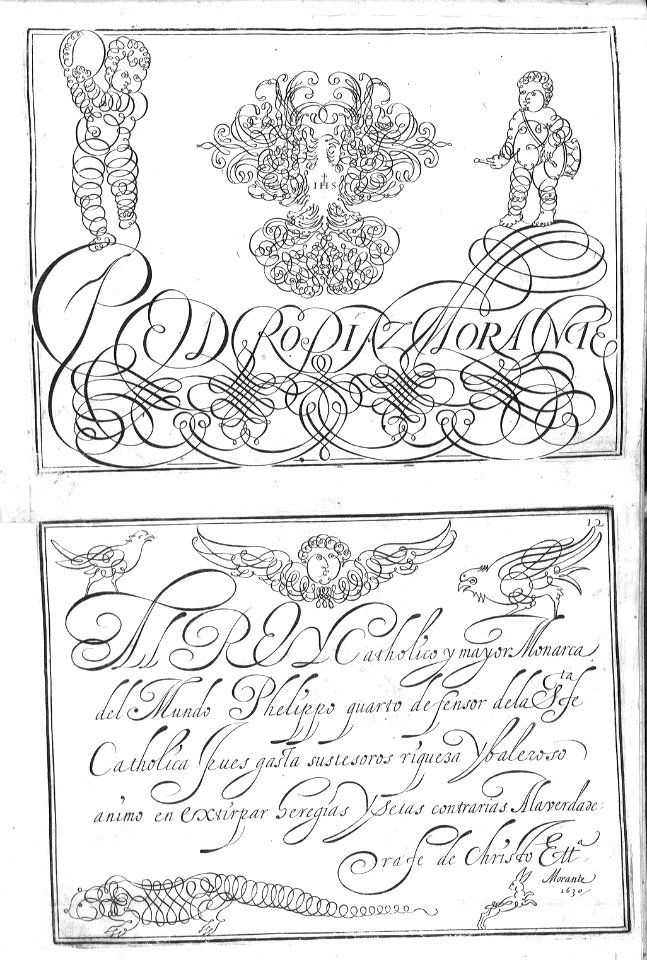 IHS
PEDRO DIAZ MORANTE
12
Al REY Catholico y mayor Monarca
del Mundo Phelippo quarto defensor dela Sta fe
Catholica Pues gasta sus tesoros riqueza Y baleroso
animo en extirpar heregias Y setas contrarias A la verdade-
ra fe de Christo Etta
Morante
1630